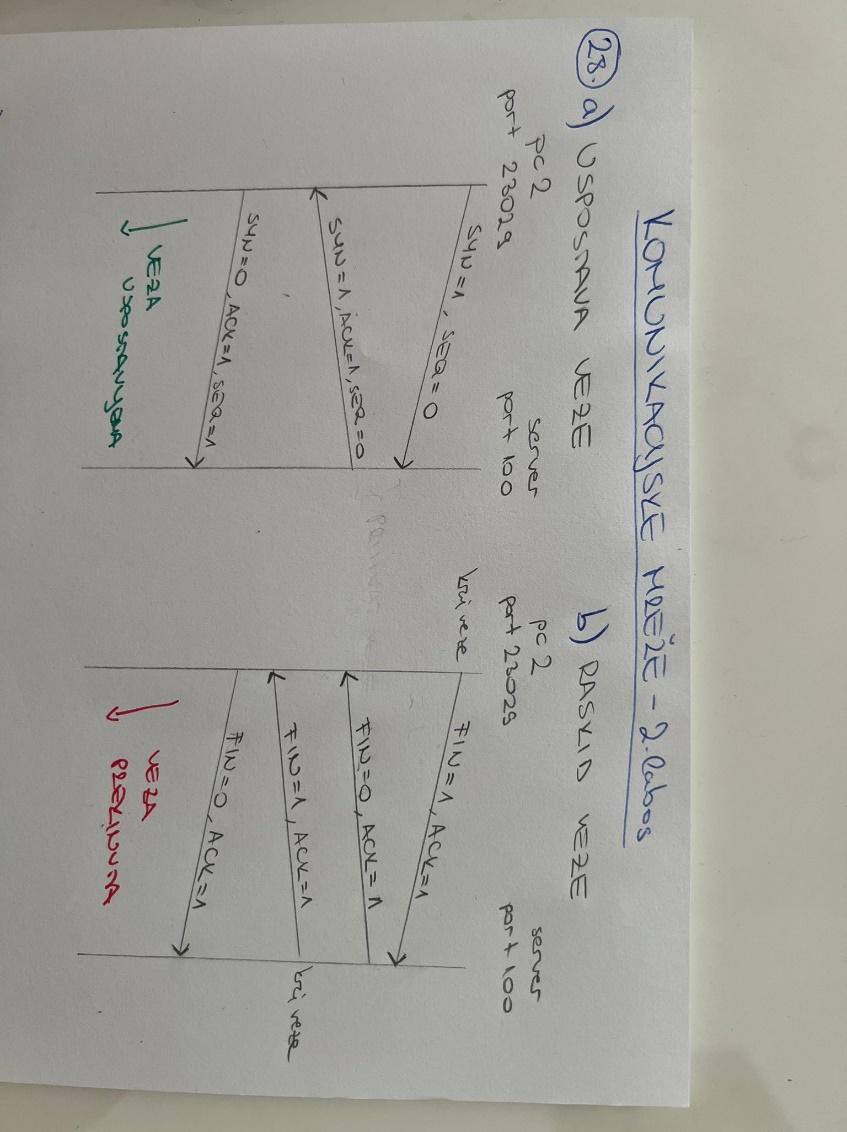 KOMUNIKACIJSKE MREŽE - 2. labos
28. a) USPOSTAVA VEZE
pc 2
port 23029
server
port 100
SYN=1, SEQ=0
SYN=1, ACK=1, SEQ=0
SYN=0, ACK=1, SEQ=1
VEZA
USPOSTAVLJENA
b) RASKID VEZE
pc 2
port 23029
server
port 100
kraj veze
FIN=1, ACK=1
FIN=0, ACK=1
FIN=1, ACK=1
kraj veze
FIN=0, ACK=1
VEZA
PREKINUTA